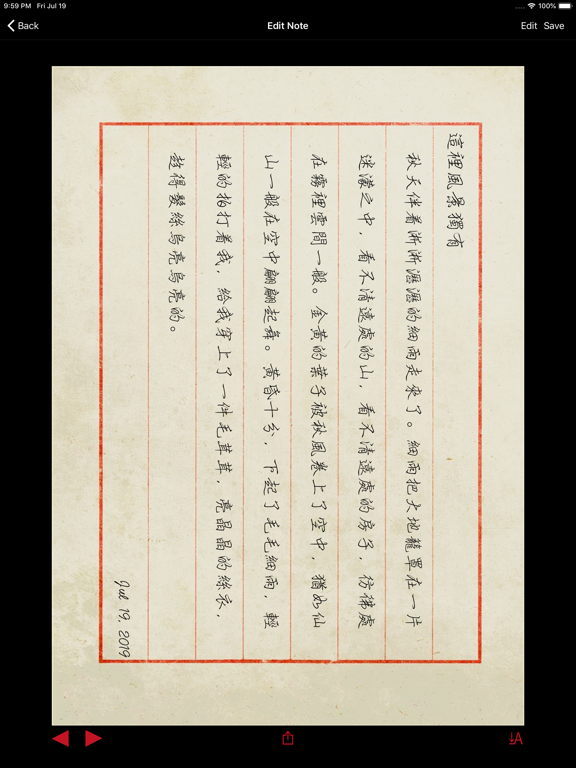 9:59 PM Fri Jul 19
100%
Back
Edit Note
Edit Save
這裡風景獨有
秋天伴着淅淅瀝瀝的細雨走來了。細雨把大地籠罩在一片
迷濛之中，看不清遠處的山，看不清遠處的房子，彷彿處
在霧裡雲間一般。金黃的葉子被秋風卷上了空中，猶如仙
山一般在空中翩翩起舞。黃昏十分，下起了毛毛細雨，輕
輕的拍打着我，給我穿上了一件毛茸茸，亮晶晶的絲衣，
得髮絲烏亮烏亮的。
Jul 19, 2019